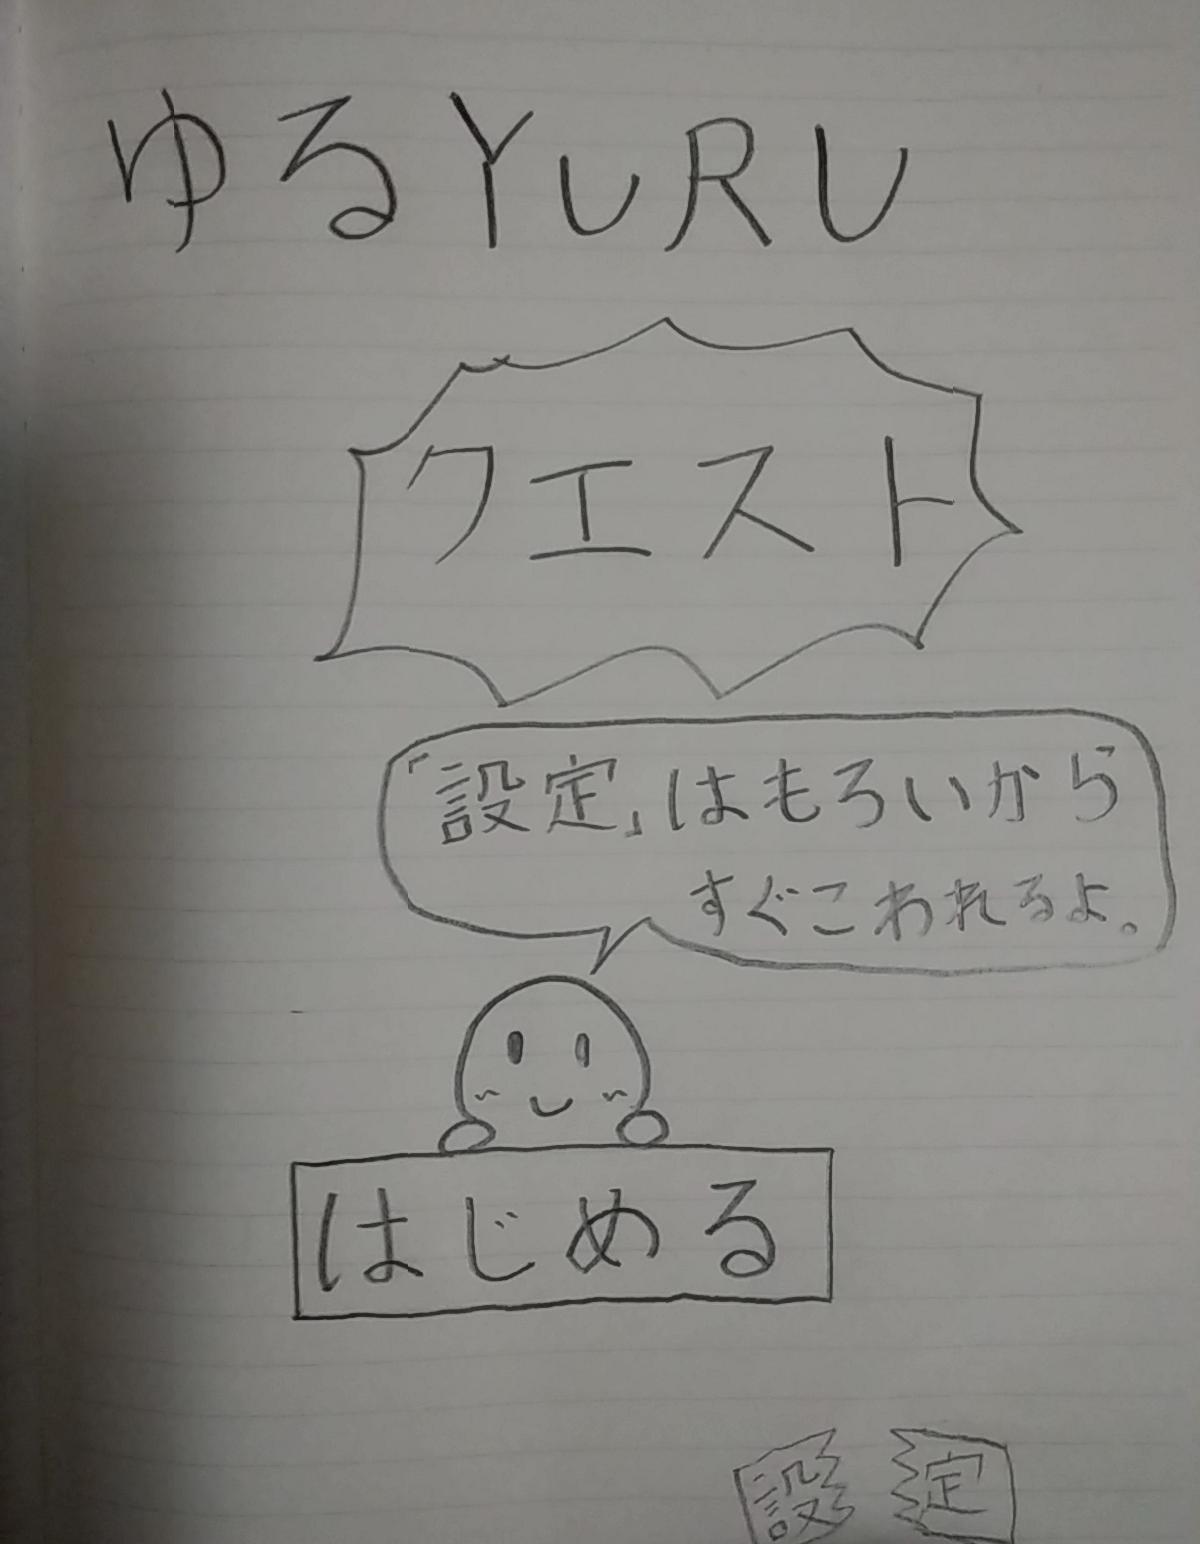 ゆるYURU
クエスト
「設定」はもろいから
すぐこわれるよ。
はじめる
設定